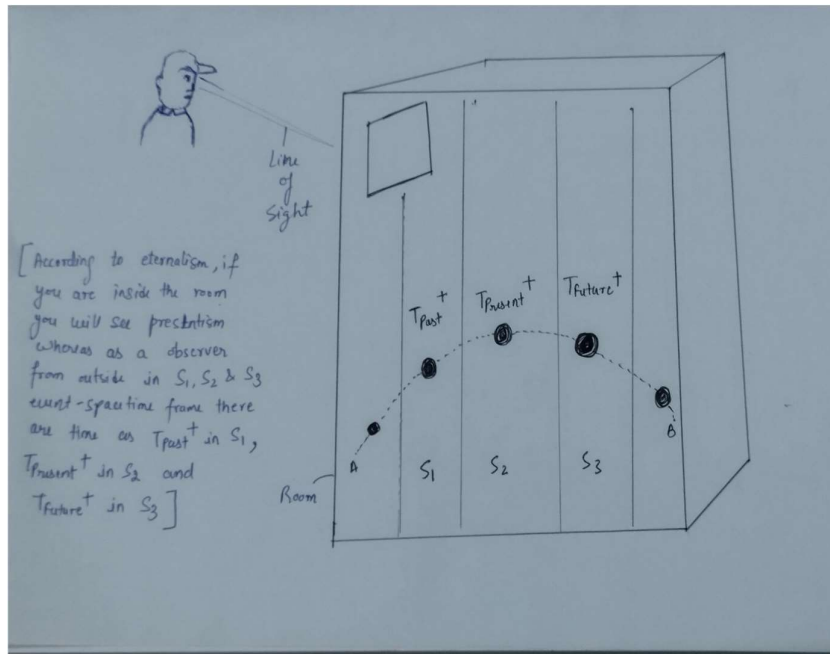 Line
of
Sight
[According to eternalism, if
you are inside the room
you will see presentism
whereas as a observer
from outside in S1, S2 & S3
event-spacetime frame there
are time as TPast+ in S1,
TPresent+ in S2 and
TFuture+ in S3]
TPast+ TPresent+ TFuture+
A B
S1 S2 S3
Room